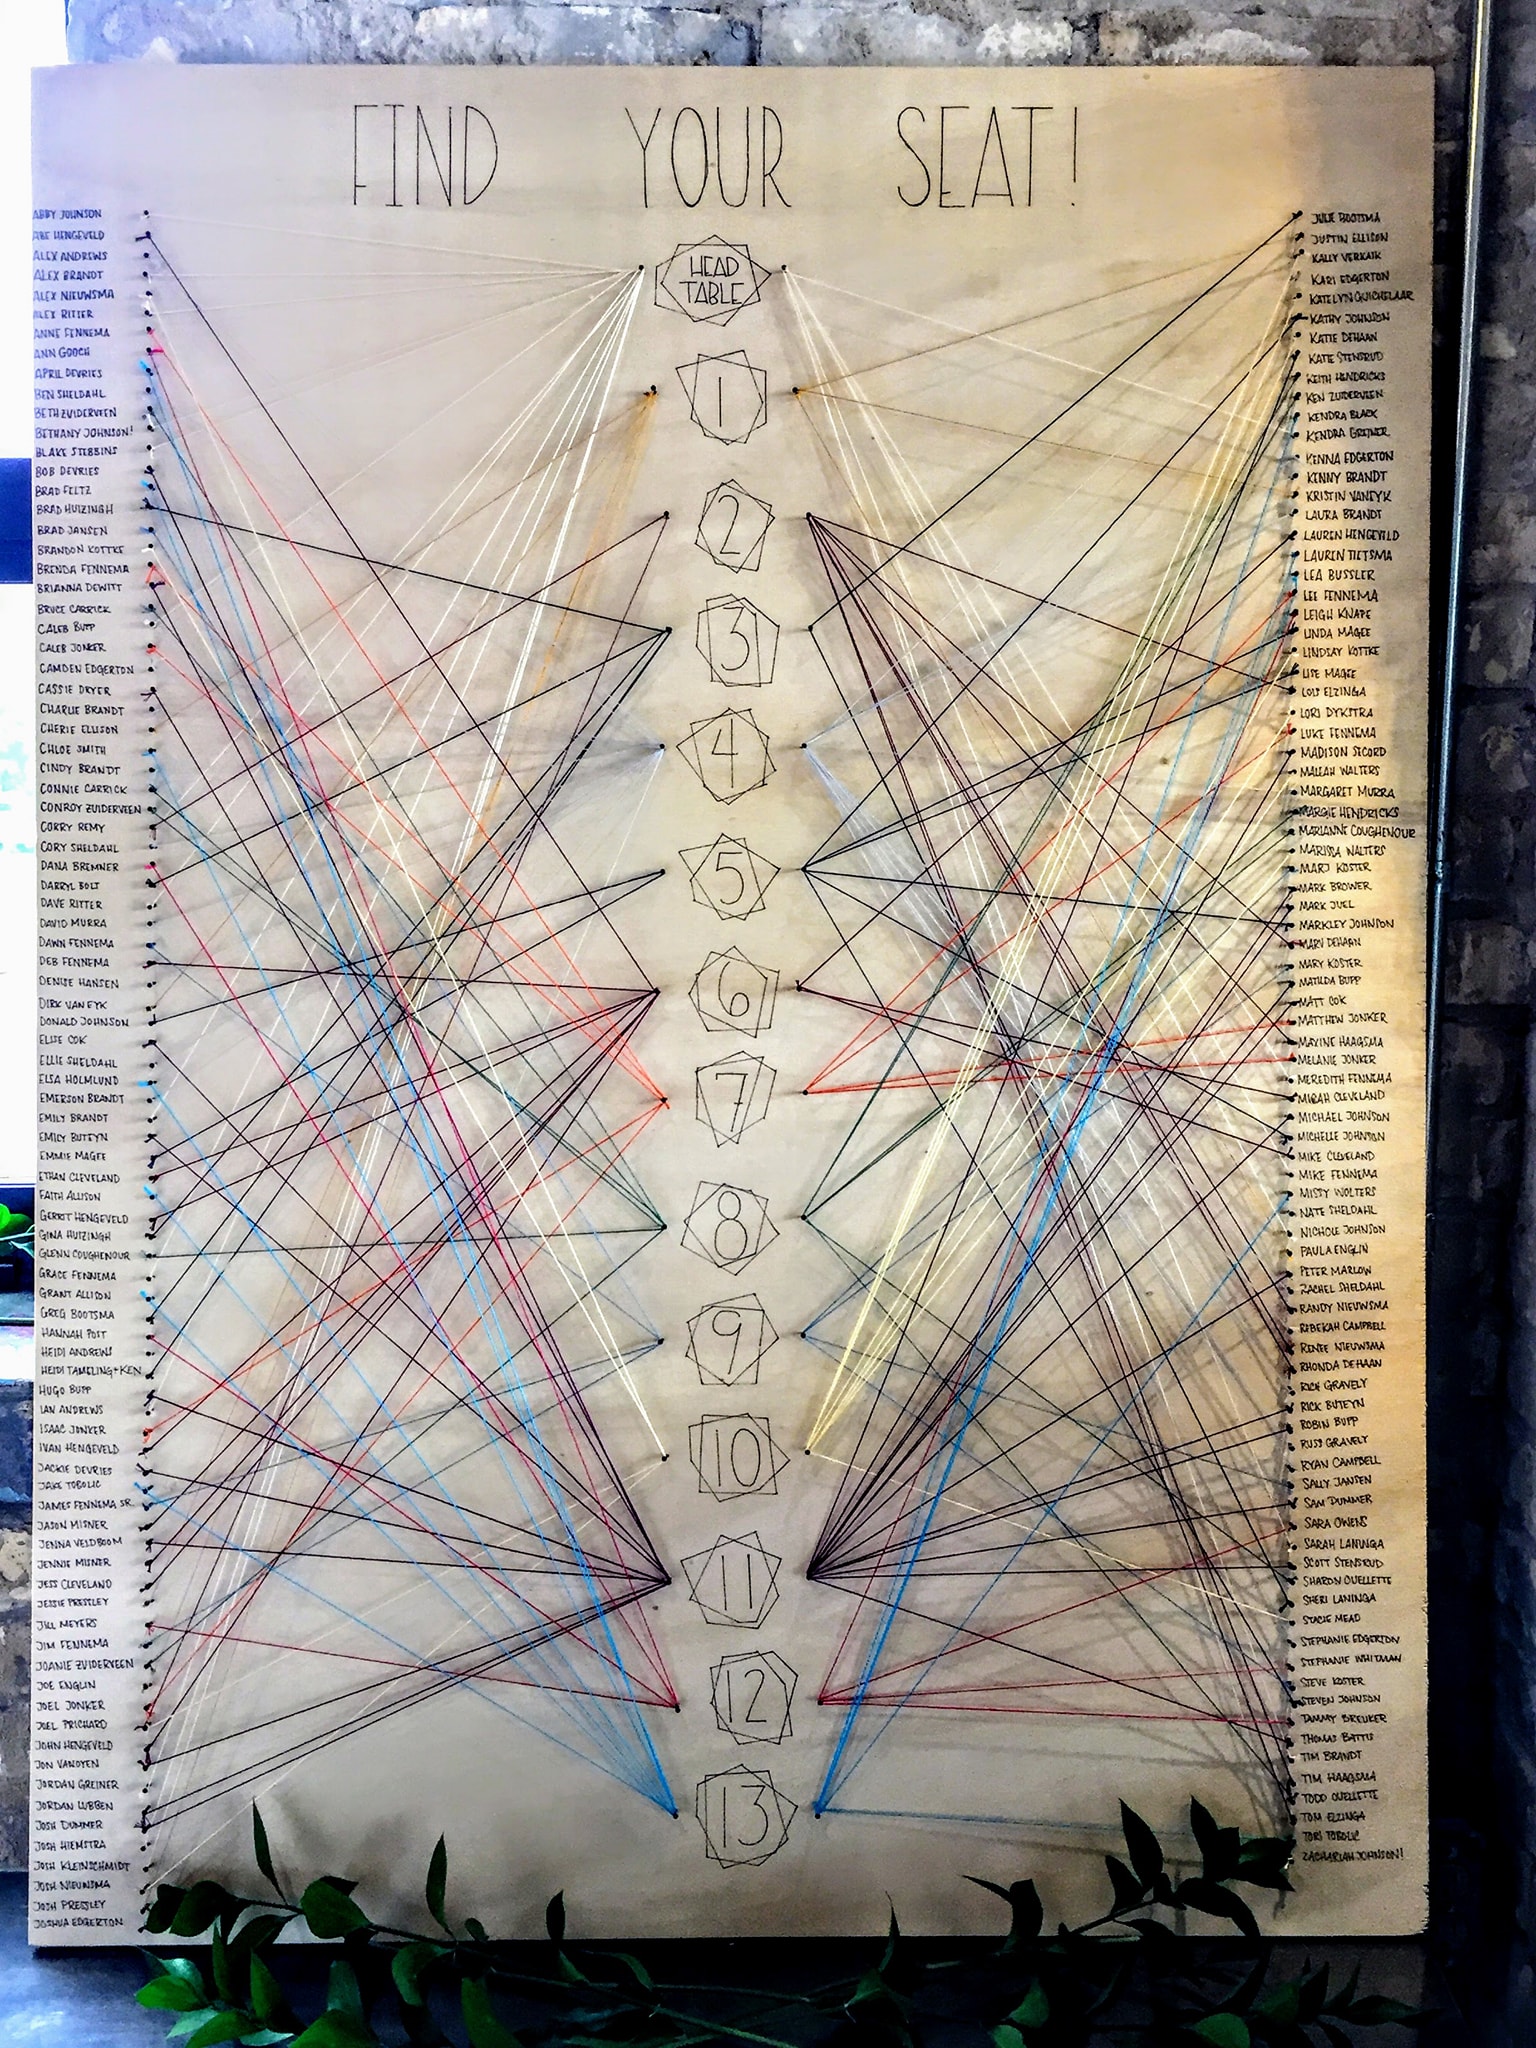 FIND YOUR SEAT!
ABBY JOHNSON
ABE HENGEVELD
ALEX ANDREWS
ALEX BRANDT
ALEX NIEUWSMA
ALEX RITTER
ANNE FENNEMA
ANN GOOCH
APRIL DEVRIES
BEN SHELDAHL
BETH ZUIDERVEEN
BETHANY JOHNSON!
BLAKE STEBBINS
BOB DEVRIES
BRAD FELTZ
BRAD HUIZINGH
BRAD JANSEN
BRANDON KOTTKE
BRENDA FENNEMA
BRIANNA DEWITT
BRUCE CARRICK
CALEB BUPP
CALEB JONKER
CAMDEN EDGERTON
CASSIE DRYER
CHARLIE BRANDT
CHERIE ELLISON
CHLOE SMITH
CINDY BRANDT
CONNIE CARRICK
CONROY ZUIDERVEEN
CORRY REMY
CORY SHELDAHL
DANA BREMNER
DARRYL BOLT
DAVE RITTER
DAVID MURRA
DAWN FENNEMA
DEB FENNEMA
DENISE HANSEN
DIRK VAN EYK
DONALD JOHNSON
ELISE COK
ELLIE SHELDAHL
ELSA HOLMLUND
EMERSON BRANDT
EMILY BRANDT
EMILY BUTEYN
EMMIE MAGEE
ETHAN CLEVELAND
FAITH ALLISON
GERRIT HENGEVELD
GINA HUIZINGH
GLENN COUGHENOUR
GRACE FENNEMA
GRANT ALLISON
GREG BOOTSMA
HANNAH POST
HEIDI ANDREWS
HEIDI TAMELING+KEN
HUGO BUPP
IAN ANDREWS
ISAAC JONKER
IVAN HENGEVELD
JACKIE DEVRIES
JAKE TOBOLIC
JAMES FENNEMA SR.
JASON MISNER
JENNA VELDBOOM
JENNIE MISNER
JESS CLEVELAND
JESSIE PRESSLEY
JILL MEYERS
JIM FENNEMA
JOANIE ZUIDERVEEN
JOE ENGLIN
JOEL JONKER
JOEL PRICHARD
JOHN HENGEVELD
JON VANOYEN
JORDAN GREINER
JORDAN LUBBEN
JOSH DUMMER
JOSH HIEMSTRA
JOSH KLEINSCHMIDT
JOSH NIEUWSMA
JOSH PRESSLEY
JOSHUA EDGERTON
HEAD
TABLE
1
2
3
4
5
6
7
8
9
10
11
12
13
JULIE BOOTSMA
JUSTIN ELLISON
KALLY VERKAIK
KARI EDGERTON
KATELYN QUICHELAAR
KATHY JOHNSON
KATIE DEHAAN
KATIE STENSRUD
KEITH HENDRICKS
KEN ZUIDERVEEN
KENDRA BLACK
KENDRA GREINER
KENNA EDGERTON
KENNY BRANDT
KRISTIN VANEYK
LAURA BRANDT
LAUREN HENGEVELD
LAUREN TIETSMA
LEA BUSSLER
LEE FENNEMA
LEIGH KNAPE
LINDA MAGEE
LINDSAY KOTTKE
LISE MAGEE
LOIS ELZINGA
LORI DYKSTRA
LUKE FENNEMA
MADISON SECORD
MALEAH WALTERS
MARGARET MURRA
MARGIE HENDRICKS
MARIANNE COUGHENOUR
MARISSA WALTERS
MARJ KOSTER
MARK BROWER
MARK JUEL
MARKLEY JOHNSON
MARV DEHAAN
MARY KOSTER
MATILDA BUPP
MATT COK
MATTHEW JONKER
MAXINE HAAGSMA
MELANIE JONKER
MEREDITH FENNEMA
MICAH CLEVELAND
MICHAEL JOHNSON
MICHELLE JOHNSON
MIKE CLEVELAND
MIKE FENNEMA
MISSY WOLTERS
NATE SHELDAHL
NICHOLE JOHNSON
PAULA ENGLIN
PETER MARLOW
RACHEL SHELDAHL
RANDY NIEUWSMA
REBEKAH CAMPBELL
RENEE NIEUWSMA
RHONDA DEHAAN
RICK GRAVELY
RICK BUTEYN
ROBIN BUPP
RUSS GRAVELY
RYAN CAMPBELL
SALLY JANSEN
SAM DUMMER
SARA OWENS
SARAH LANINGA
SCOTT STENSRUD
SHARON OUELLETTE
SHERI LANINGA
STACIE MEAD
STEPHANIE EDGERTON
STEPHANIE WHITMAN
STEVE KOSTER
STEVEN JOHNSON
TAMMY BREUKER
THOMAS BATTIS
TIM BRANDT
TIM HAAGSMA
TODD OUELLETTE
TOM ELZINGA
TORI TOBOLIC
ZACHARIAH JOHNSON!